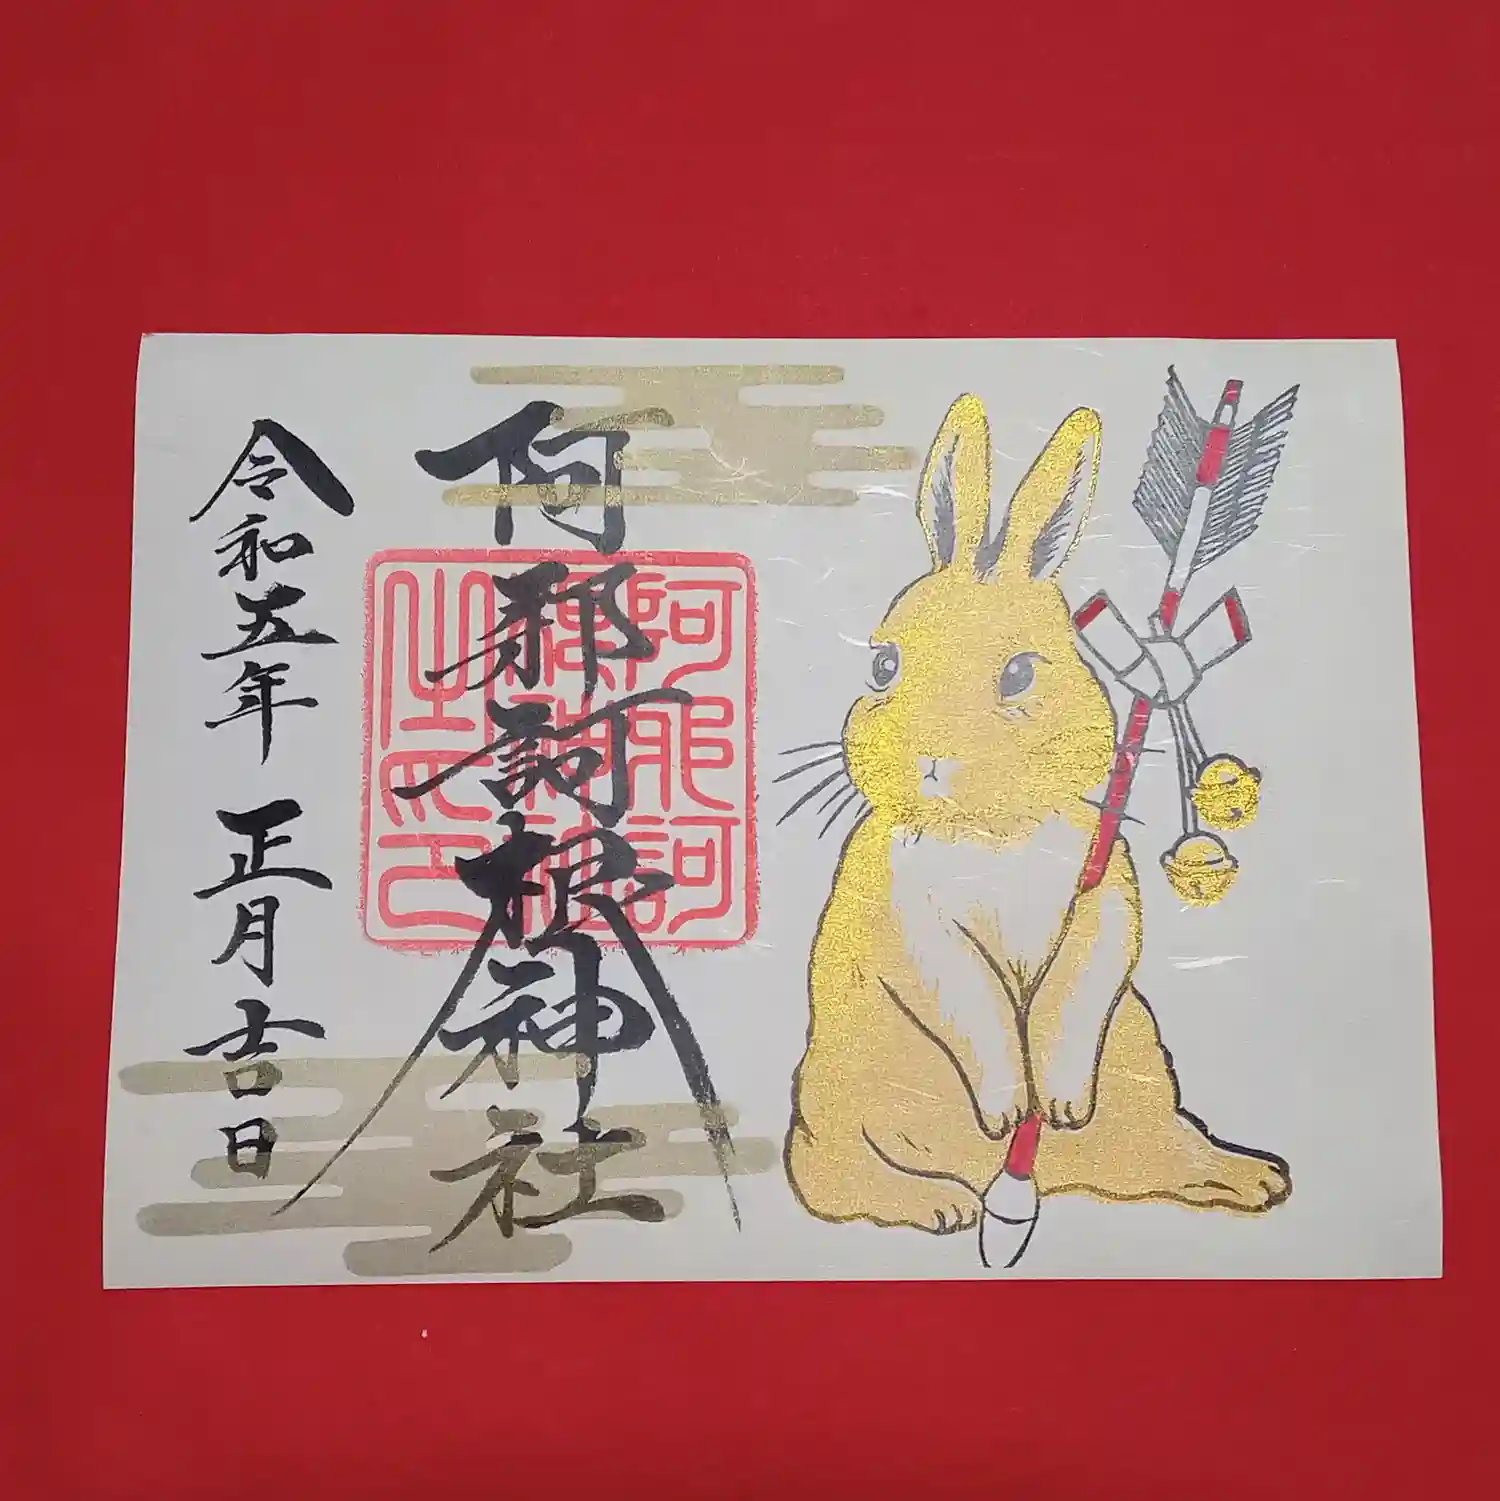 阿邪訶根神社
阿邪訶
根神社
之印
令和五年 正月吉日